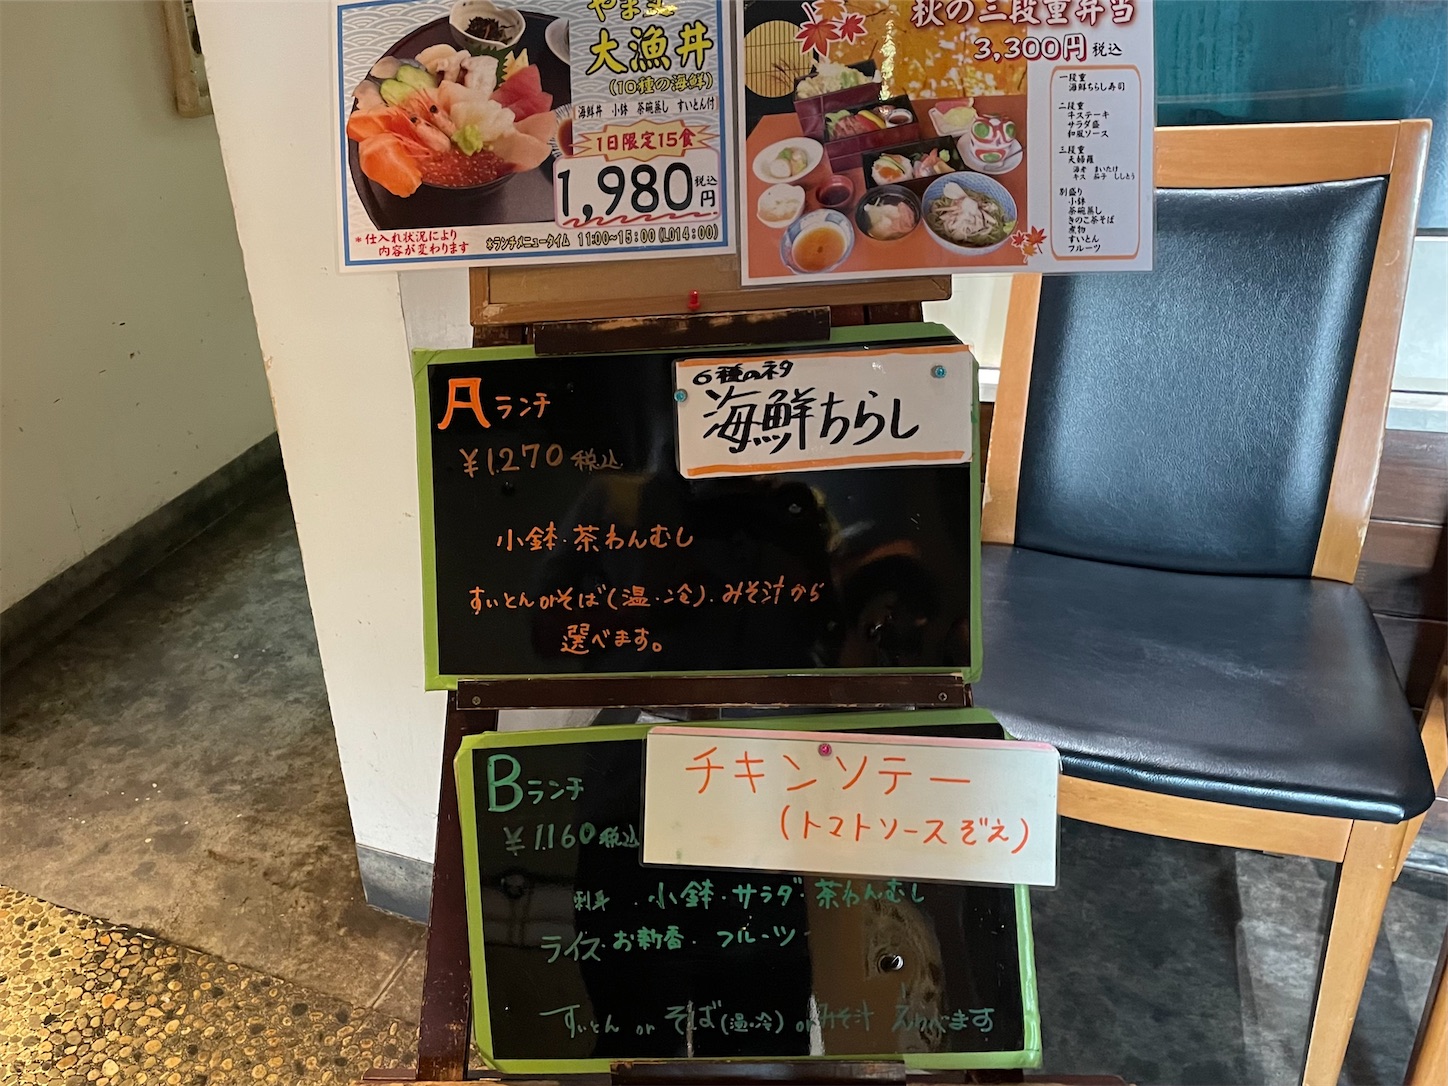 大漁丼
(10種の海鮮)
海鮮丼 小鉢 茶碗蒸し すいとん付
1日限定15食
1,980円 税込
*仕入れ状況により
内容が変わります
*ランチメニュータイム 11:00~15:00(LO14:00)
秋の三段重弁当
3,300円 税込
一段重
海鮮ちらし寿司
二段重
牛ステーキ
サラダ盛
和風ソース
三段重
天婦羅
海老 まいたけ
キス 茄子 ししとう
別盛り
小鉢
茶碗蒸し
きのこ茶そば
煮物
すいとん
フルーツ
Aランチ
¥1,270 税込
6種のネタ
海鮮ちらし
小鉢・茶わんむし
すいとんorそば(温・冷)・みそ汁から
選べます。
Bランチ
¥1,160 税込
チキンソテー
(トマトソースぞえ)
刺身・小鉢・サラダ・茶わんむし
ライス・お新香・フルーツ
すいとん or そば(温・冷) orみそ汁 えらべます